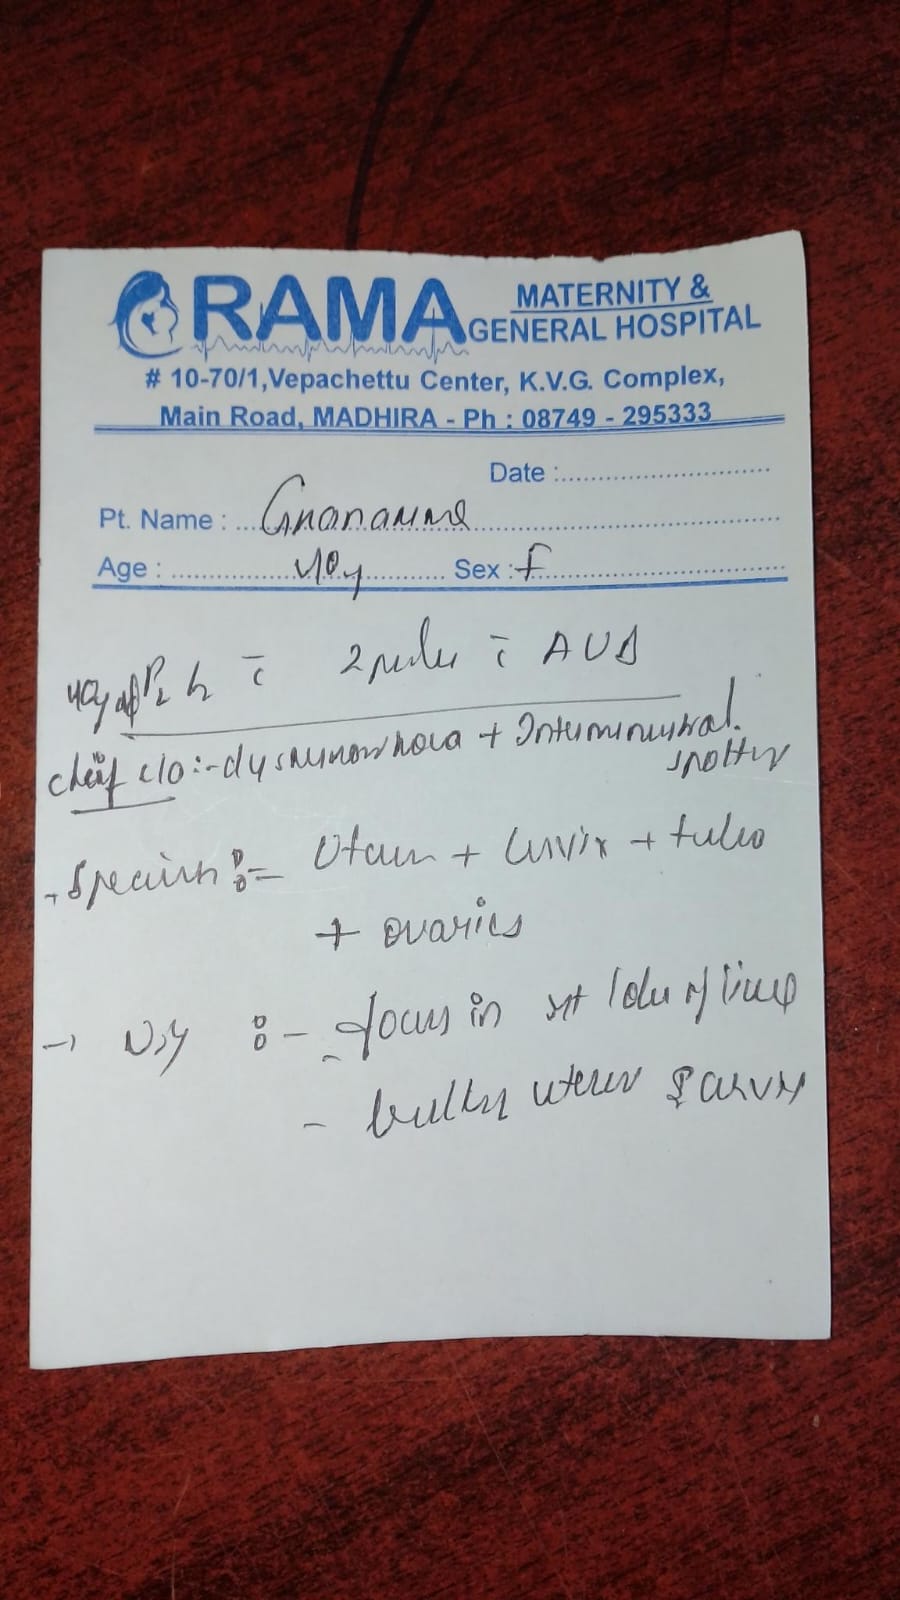 RAMA MATERNITY &
GENERAL HOSPITAL
# 10-70/1, Vepachettu Center, K.V.G. Complex,
Main Road, MADHIRA - Ph : 08749 - 295333
Date :
Pt. Name : Gnanamma
Age : 40y Sex : F
40y of P2 L2 c̄ c̄ AUB
Chief c/o :- dysmenorrhoea + Intermenstrual
spotting
→ Specimen :- Uterus + Cervix + tubes
+ ovaries
→ :- focus in lobe of liver
- bulky uterus & cervix